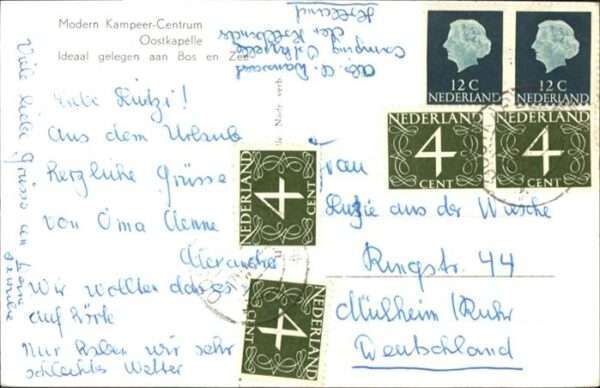 Modern Kampeer-Centrum
Oostkapelle
Ideaal gelegen aan Bos en Zee
Camping
Holland
Viele liebe Grüsse
Liebe Lutzi!
Aus dem Urlaub
herzliche Grüsse
von Oma Aenne
Alexander
Wir wollten
Nur haben wir sehr
schlechtes Wetter
12 C
NEDERLAND
12 C
NEDERLAND
NEDERLAND
4
CENT
NEDERLAND
4
CENT
NEDERLAND
4
CENT
NEDERLAND
4
CENT
Frau
Luzie aus der Wische
Ringstr. 44
Mülheim/Ruhr
Deutschland